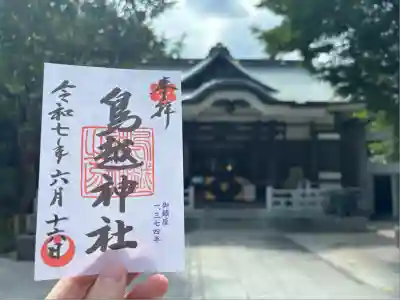 奉拝
鳥越神社
御鎮座
一、三七四年
令和七年六月十六日